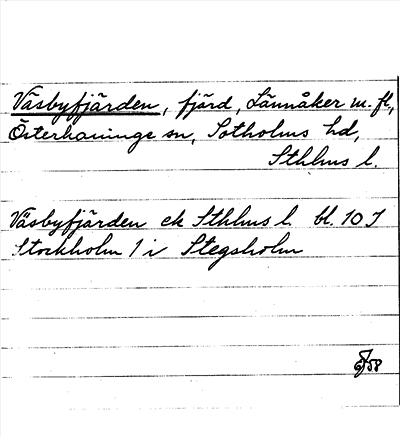 Väsbyfjärden, fjärd, Lännåker m. fl.,
Österhaninge sn, Sotholms hd,
Sthlms l.
Väsbyfjärden ek Sthlms l. bl. 10 I
Stockholm 1 i Stegsholm
58